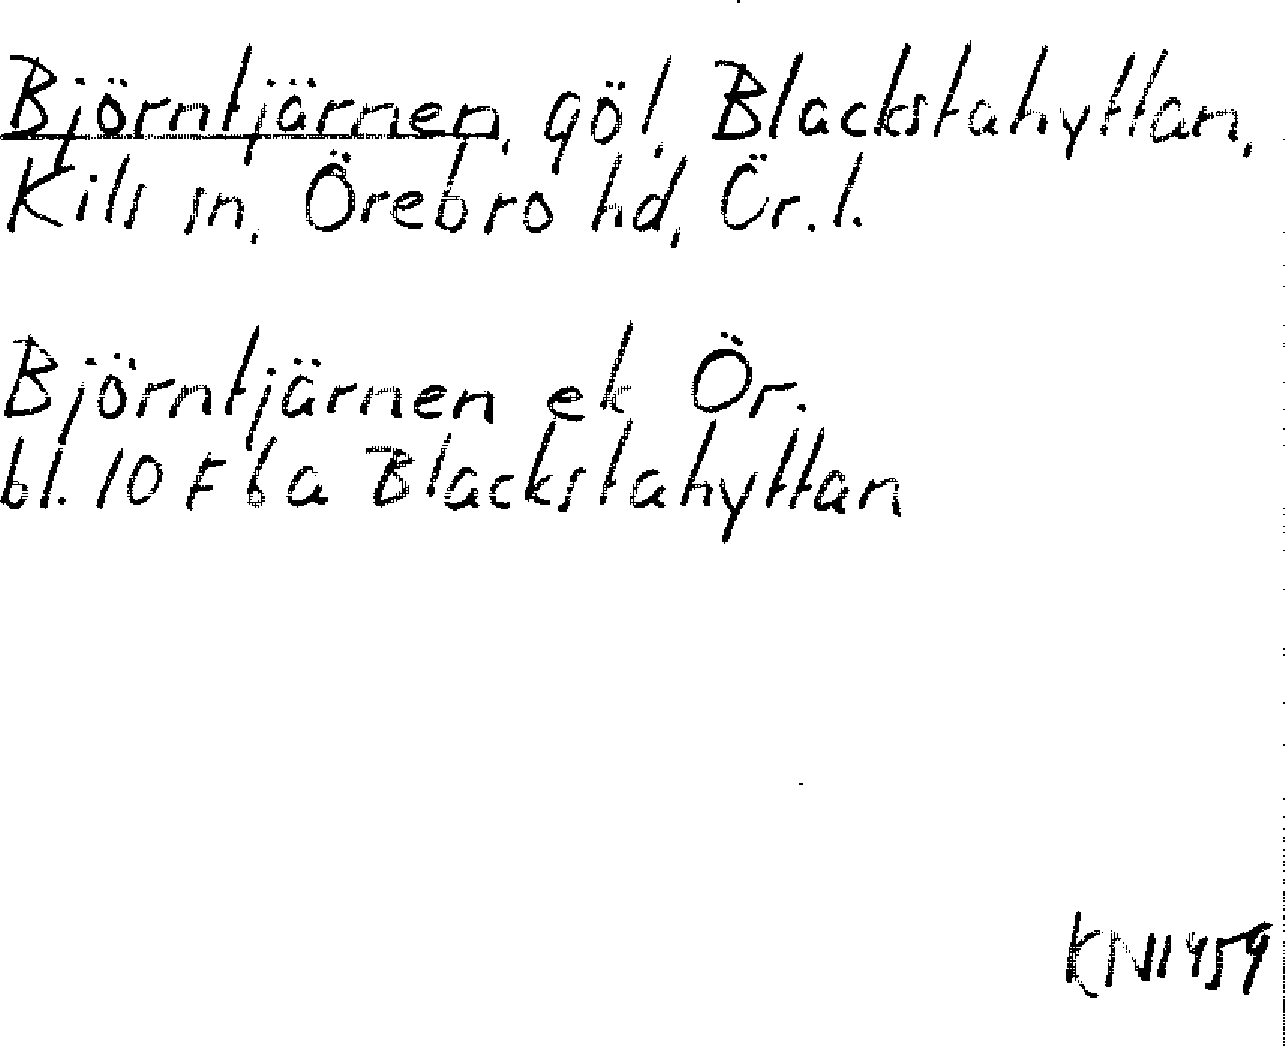 Björntjärnen, göl, Blackstahyttan,
Kils sn, Örebro hd, Ör.l.
Björntjärnen ek Ör.
bl. 10 F 6 a Blackstahyttan
KN 1959